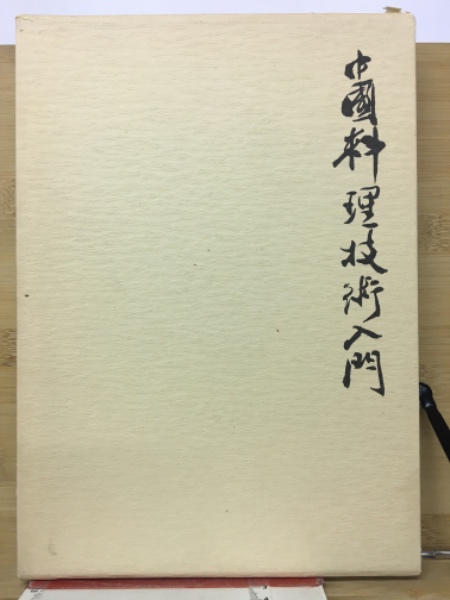 中國料理技術入門